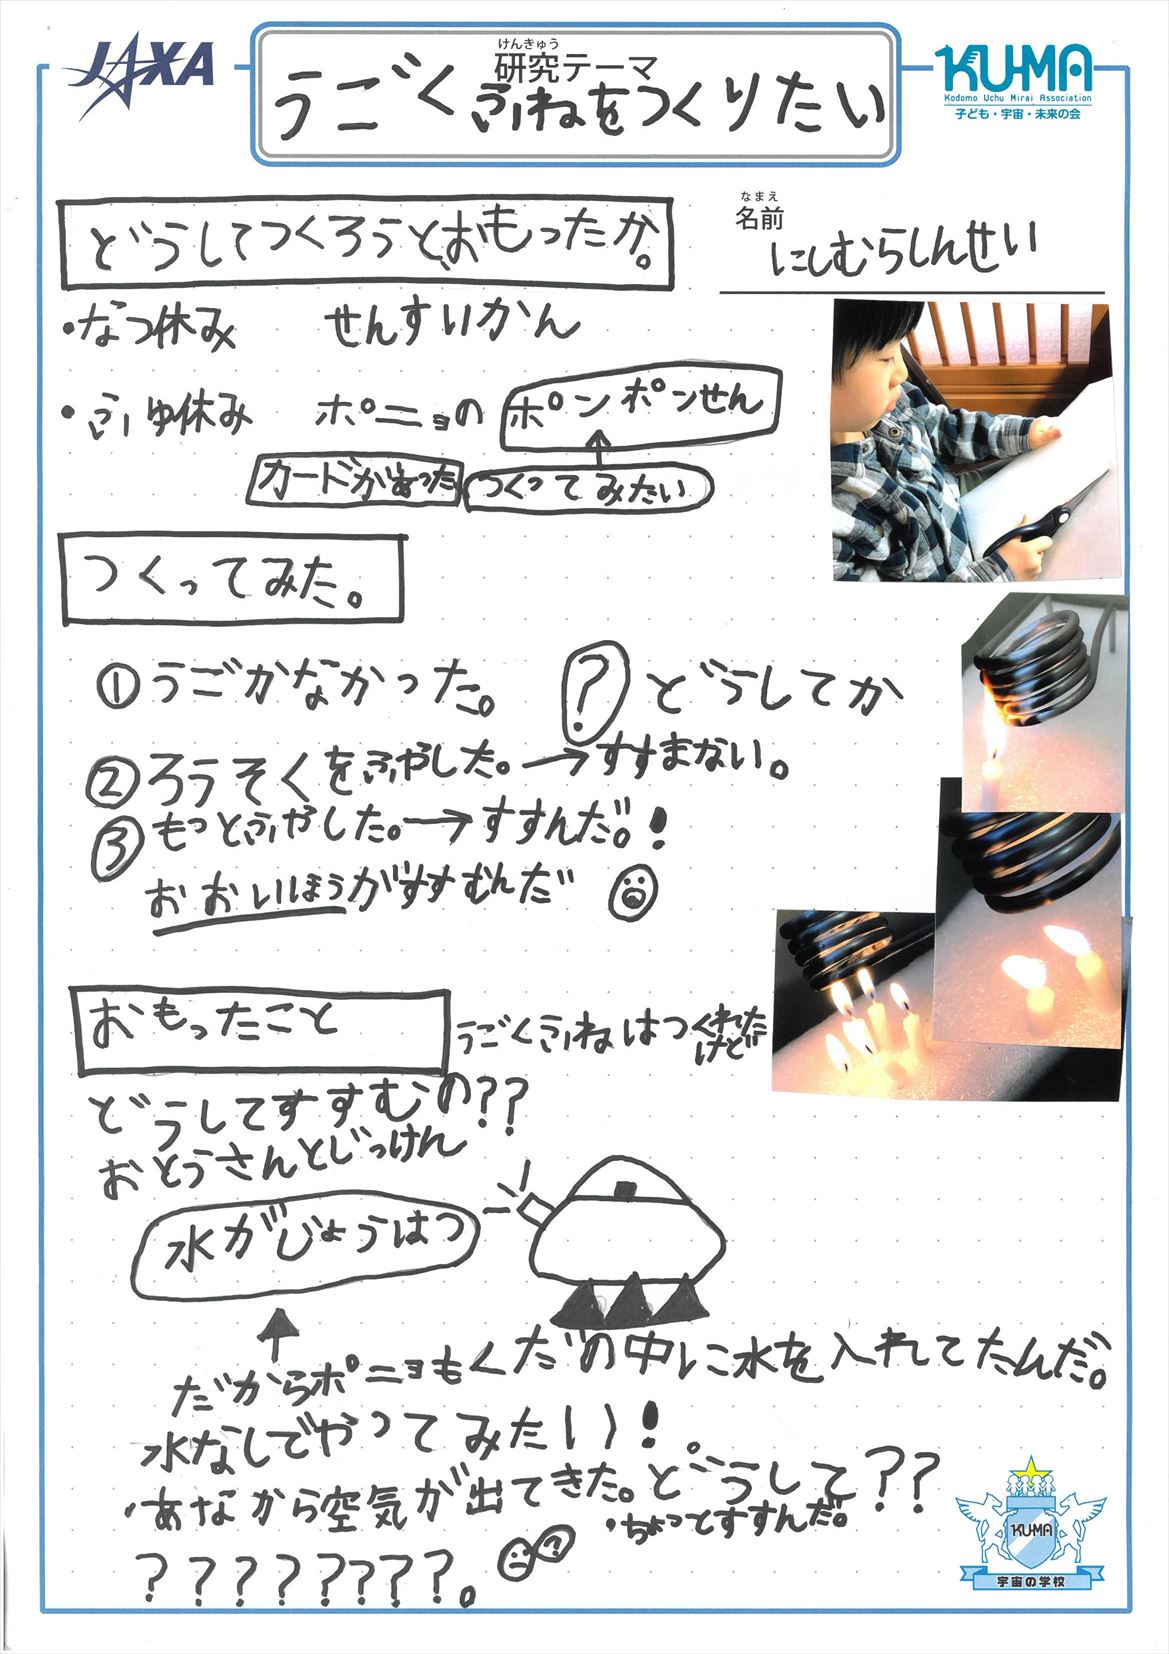 JAXA
けんきゅう
研究テーマ
うごくふねをつくりたい
KU-MA
Kodomo Uchu Mirai Association
子ども・宇宙・未来の会
なまえ
名前
にしむらしんせい
どうしてつくろうとおもったか。
・なつ休み せんすいかん
・ふゆ休み ポニョの ポンポンせん
カードがあった つくってみたい
つくってみた。
①うごかなかった。 ? どうしてか
②ろうそくをふやした。→すすまない。
③もっとふやした。→すすんだ。!
おおいほうがすすむんだ
おもったこと
うごくふねはつくれた
けど
どうしてすすむの??
おとうさんとじっけん
水がじょうはつ
だからポニョもくだの中に水を入れてたんだ。
水なしでやってみたい!
・あなから空気が出てきた。どうして??
・ちょっとすすんだ。
????????。
?
KU-MA
宇宙の学校